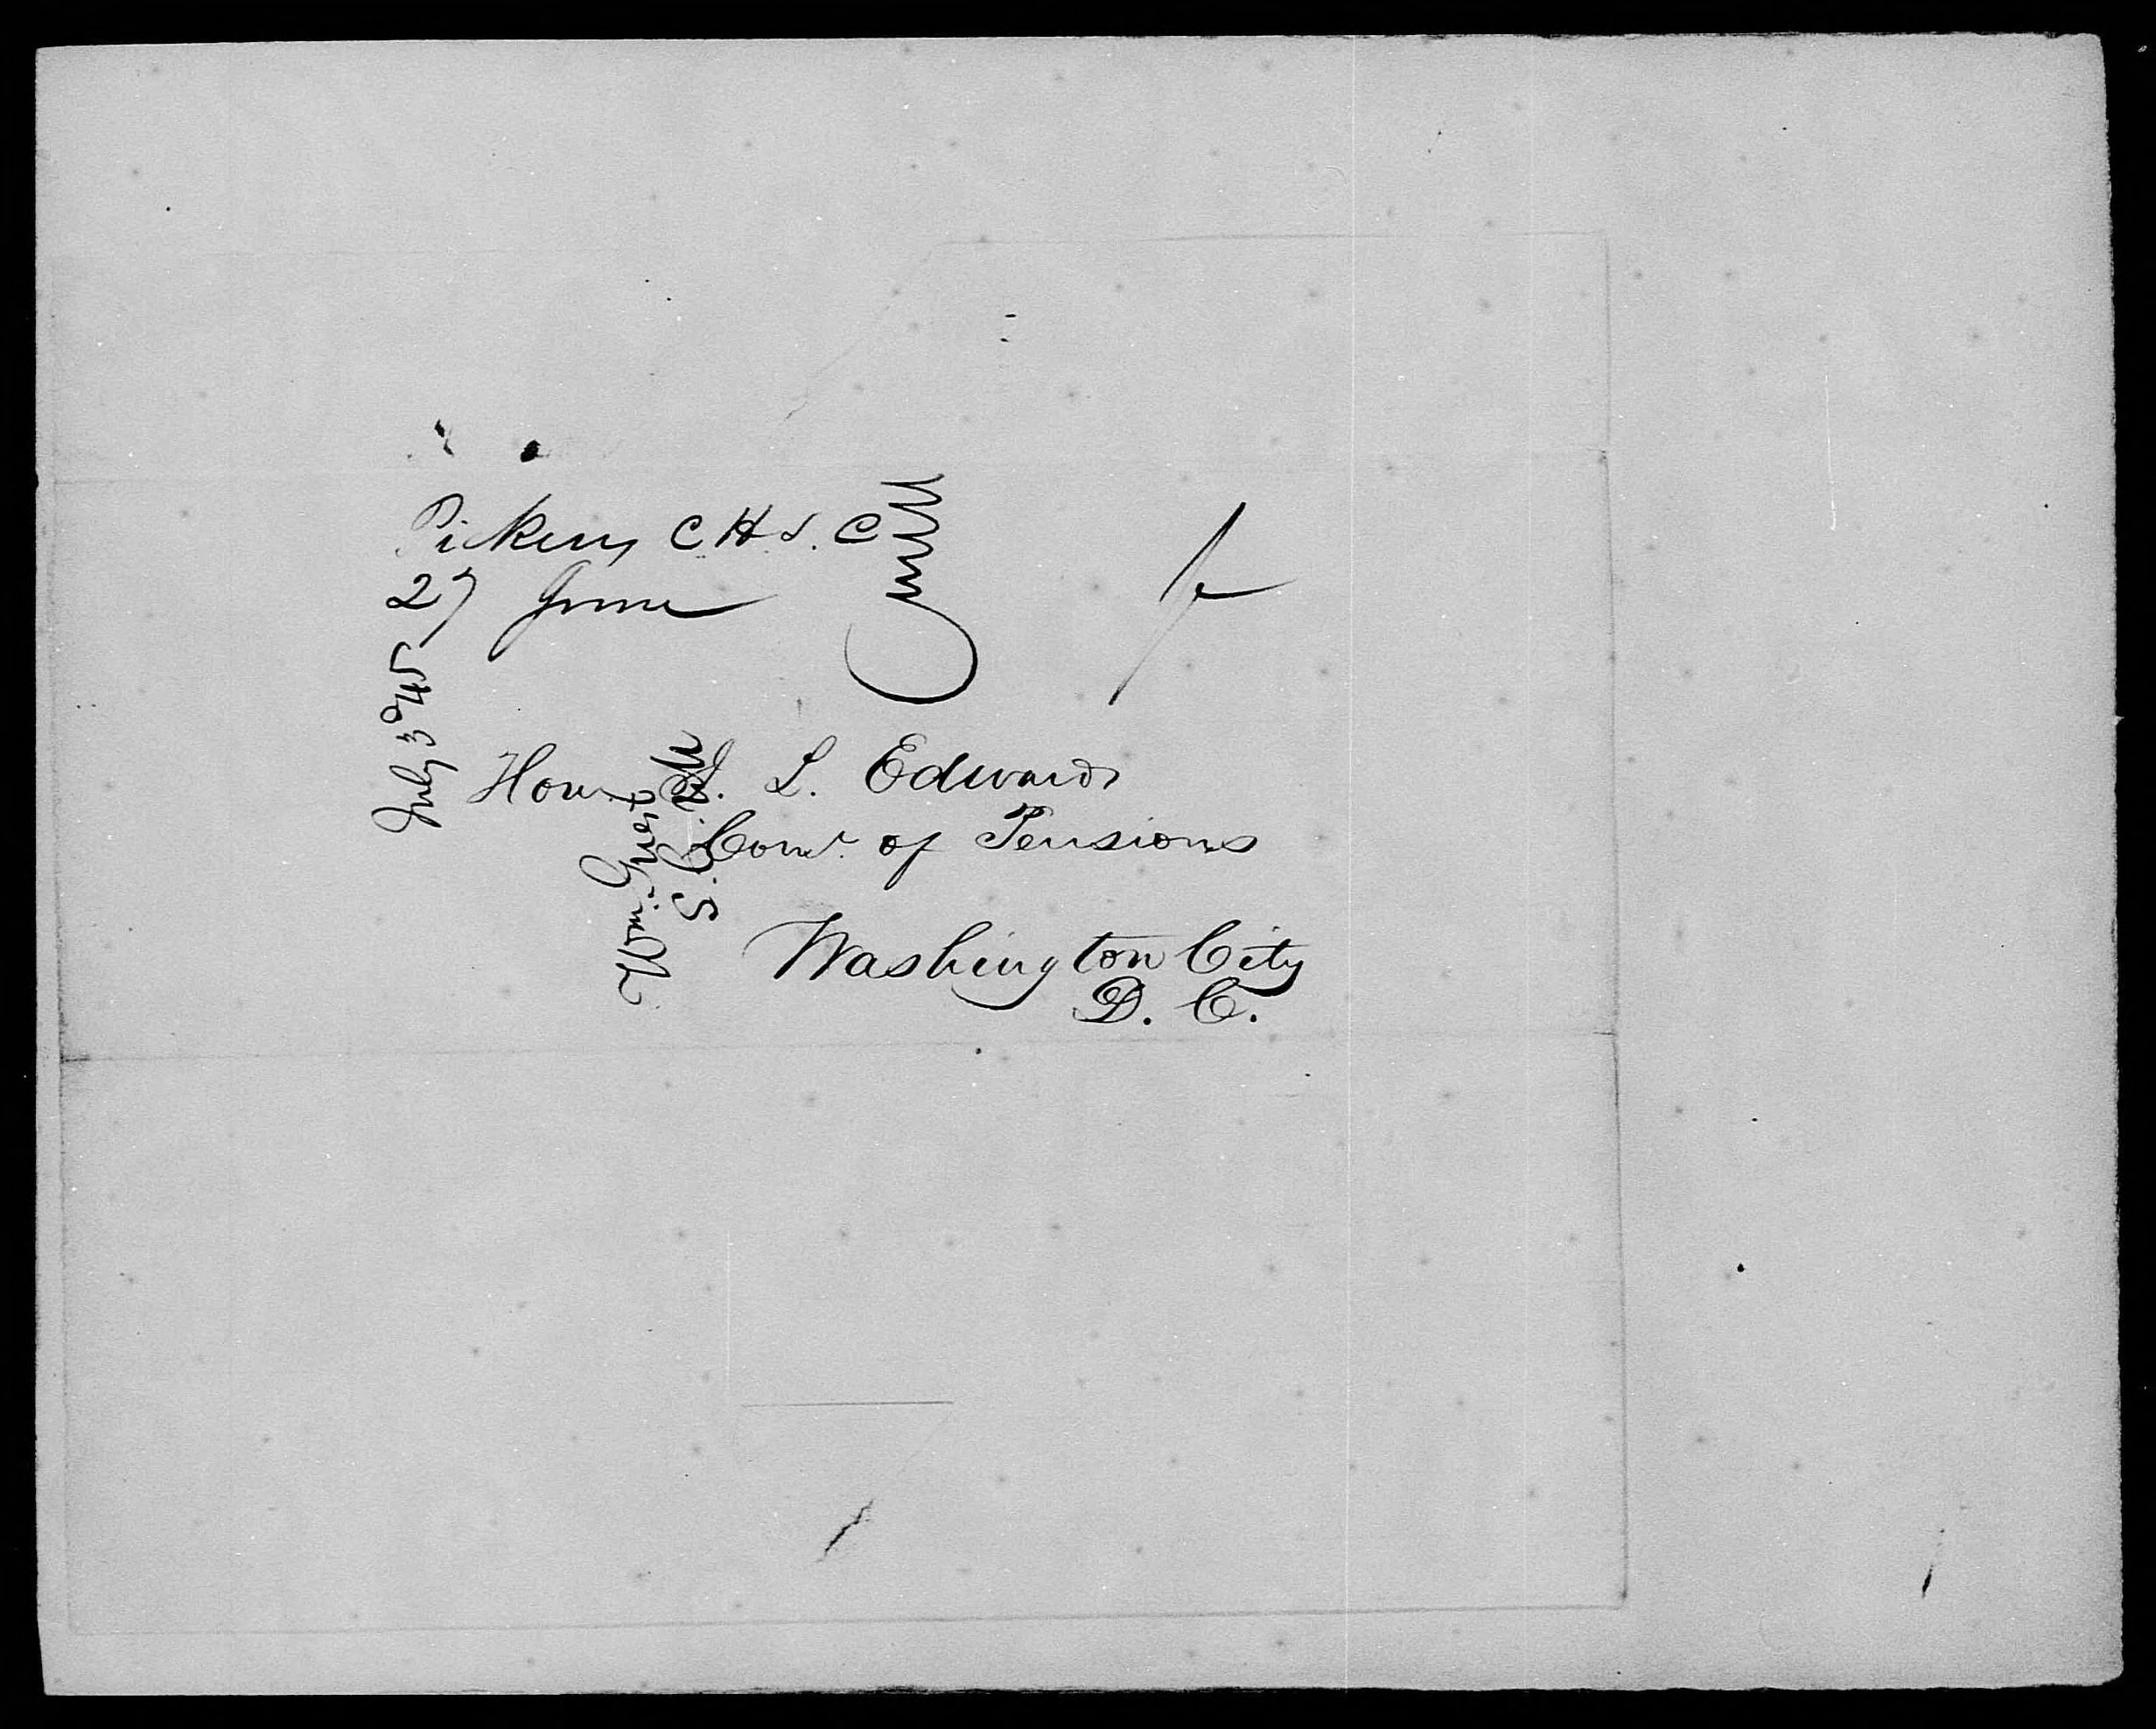 Pickens C H S. C
27 June
July 3d 45
Hon J. L. Edwards
Comr. of Pensions
Washington City
D. C.
Wm.
S. C.